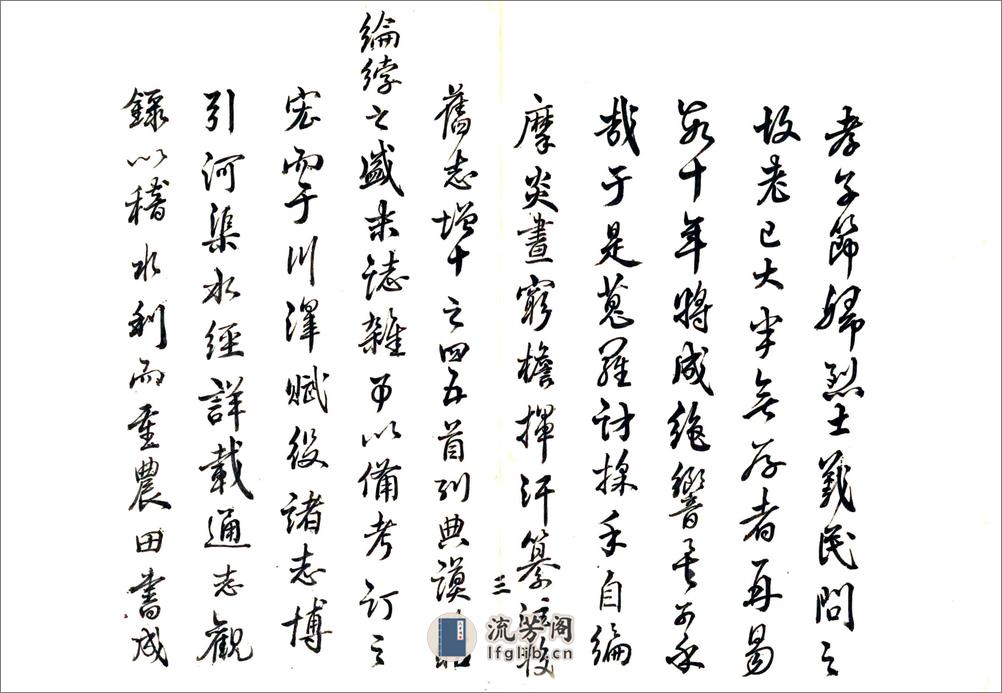 孝子節婦烈士義民問之
故老已大半無存者再易
數十年將成絶響矣可不
哉于是蒐羅討採手自編
摩炎晝窮檐揮汗纂
舊志增十之四五首列典謨
綸綍之盛末誌雜事以備考訂之
宏而于川澤賦役諸志博
引河渠水經詳載通志觀
錄以稽水利而重農田書成
三
流芳阁
lfglib.cn